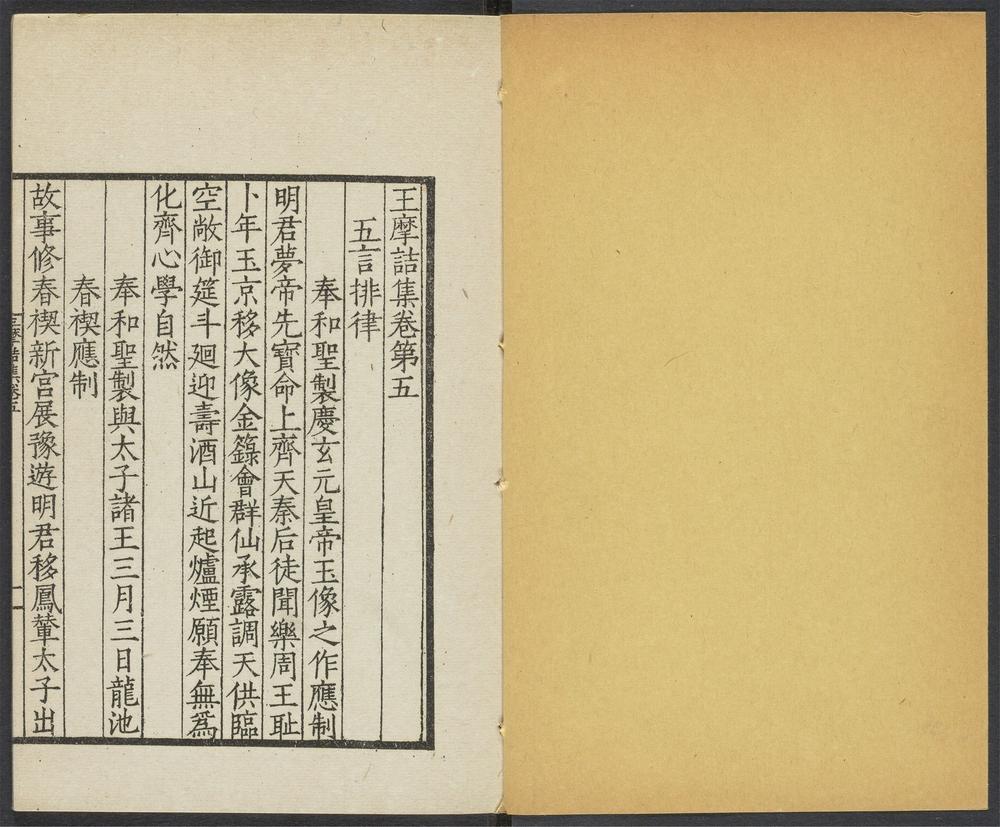 王摩詰集卷第五
五言排律
奉和聖製慶玄元皇帝玉像之作應制
明君夢帝先寶命上齊天秦后徒聞樂周王恥
卜年玉京移大像金籙會群仙承露調天供臨
空敞御筵斗廻迎壽酒山近起爐煙願奉無爲
化齊心學自然
奉和聖製與太子諸王三月三日龍池
春禊應制
故事修春禊新宮展豫遊明君移鳳輦太子出